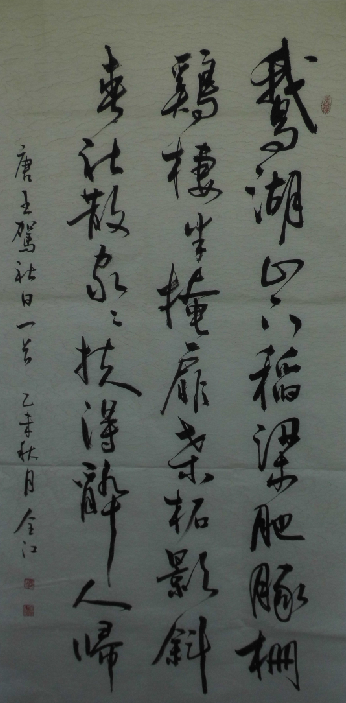 鵝湖山下稻梁肥豚柵
鷄棲半掩扉桑柘影斜
春社散家〻扶得醉人歸
唐王駕社日一首 乙亥秋月 全江